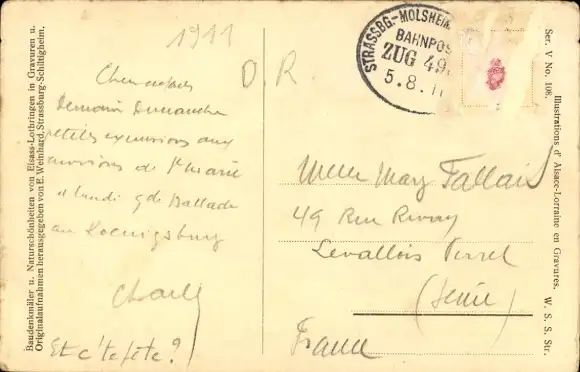 1911
Baudenkmäler u. Naturschönheiten von Elsass-Lothringen in Gravuren u.
Originalaufnahmen herausgegeben von E. Weinhard, Strassburg-Schiltigheim.
D. R.
Demain Dimanche
petites excursions aux
environs de Ste Marie
et lundi gde Ballade
au Koenigsburg
Charles
Et c'te fête?
STRASSBG.-MOLSHEIM
BAHNPOS
ZUG 49
5.8.11
Melle Mary Fallais
49 Rue Rivay
Levallois Perret
(Seine)
France
Ser. V No. 108.
Illustrations d'Alsace-Lorraine en Gravures. W. S. S. Str.